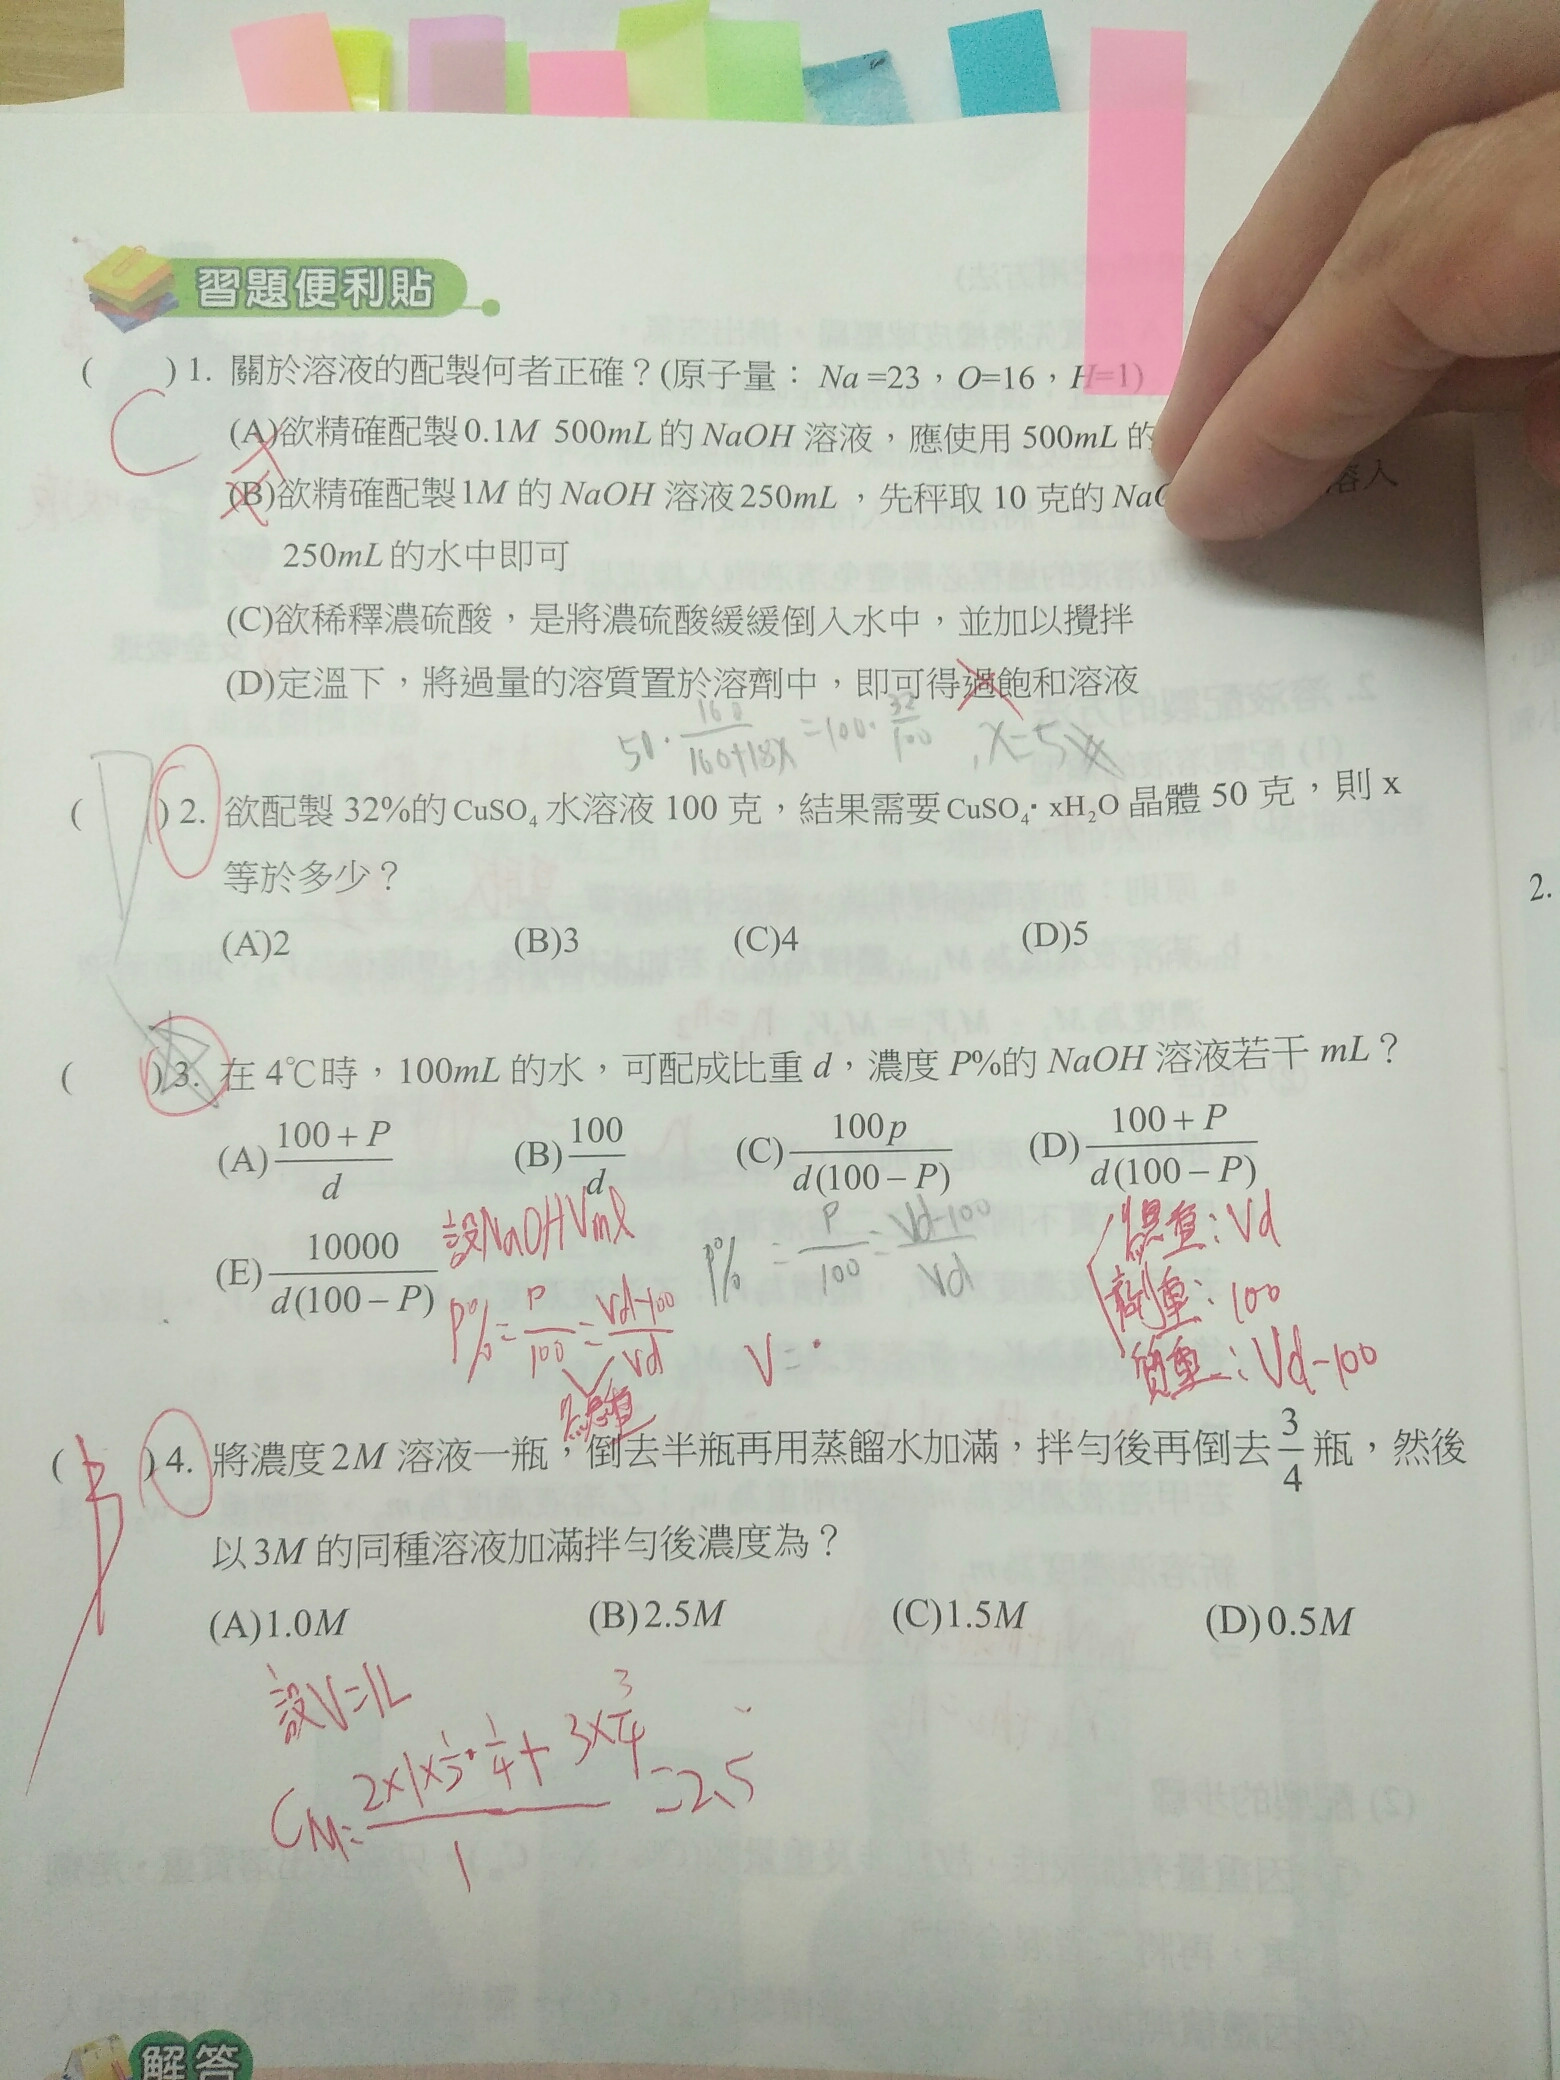 習題便利貼
( ) 1. 關於溶液的配製何者正確？(原子量： Na =23，O=16，H=1)
C
(A)欲精確配製0.1M 500mL的 NaOH 溶液，應使用 500mL 的
(B)欲精確配製1M 的 NaOH 溶液250mL，先秤取 10 克的 Na 溶入
250mL的水中即可
(C)欲稀釋濃硫酸，是將濃硫酸緩緩倒入水中，並加以攪拌
(D)定溫下，將過量的溶質置於溶劑中，即可得過飽和溶液
50·160/(160+18x)=100·32/100，x=5
( ) 2. 欲配製 32%的CuSO₄水溶液 100 克，結果需要CuSO₄·xH₂O晶體 50 克，則 x
等於多少？
(A)2 (B)3 (C)4 (D)5
( ) 3. 在 4℃時，100mL 的水，可配成比重 d，濃度 P%的 NaOH 溶液若干 mL？
(A) (100+P)/d (B) 100/d (C) 100p/(d(100−P)) (D) (100+P)/(d(100−P))
(E) 10000/(d(100−P))
設NaOH Vml
P%=P/100=(Vd-100)/Vd
總重
P%=P/100=(Vd-100)/Vd
V=
總重：Vd
劑重：100
質重：Vd-100
( ) 4. 將濃度2M 溶液一瓶，倒去半瓶再用蒸餾水加滿，拌勻後再倒去3/4瓶，然後
B
以3M 的同種溶液加滿拌勻後濃度為？
(A)1.0M (B)2.5M (C)1.5M (D)0.5M
設V=1L
CM=(2×1×1/2·1/4+3×3/4)/1=2.5
2.
解答